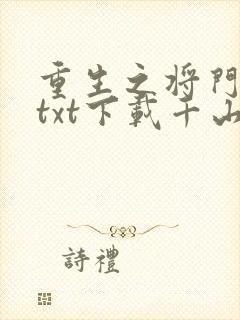 重生之将門
txt下載千山
詩禮